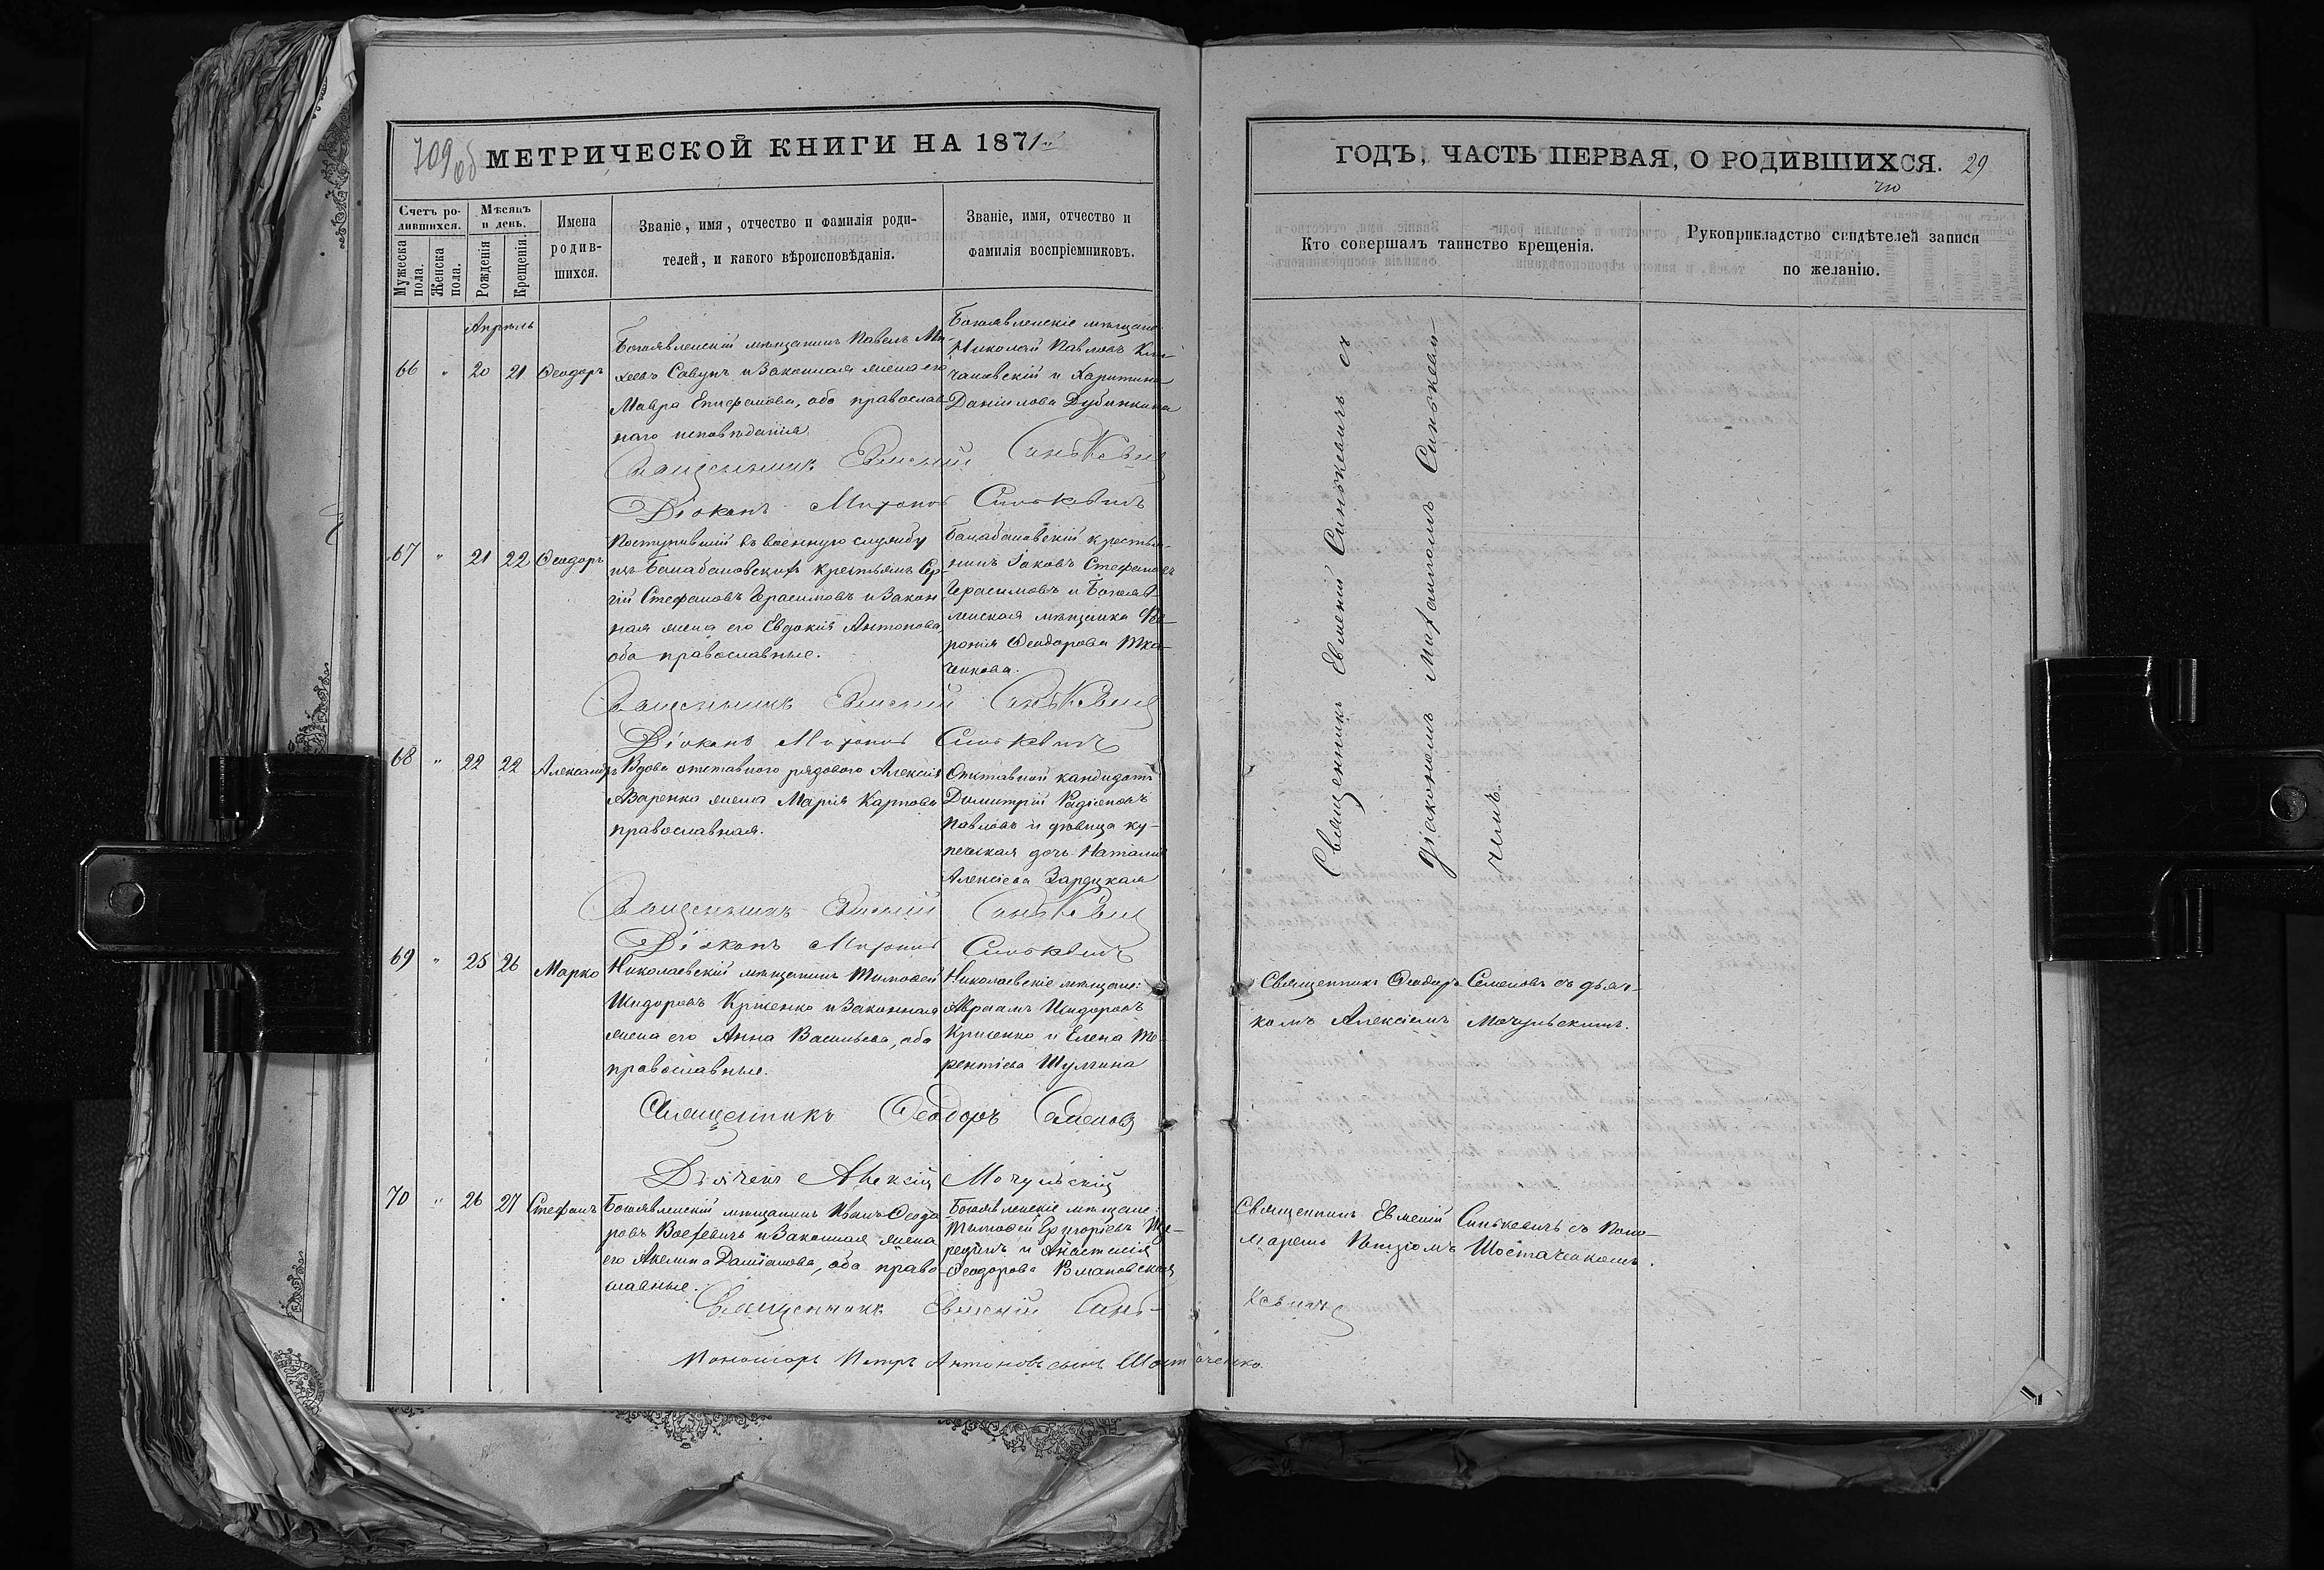 709 об
МЕТРИЧЕСКОЙ КНИГИ НА 1871
Счетъ ро-
дившихся.
Мужеска
пола.
Женска
пола.
Мѣсяцъ
и день.
Рожденія
Крещенія.
Имена
родив-
шихся.
Званіе, имя, отчество и фамилія роди-
телей, и какого вѣроисповѣданія.
Званіе, имя, отчество и
фамилія воспріемниковъ.
Апрѣль
66 " 20 21 Ѳеодоръ
Богоявленскій мѣщанинъ Павелъ Ми-
хеевъ Савунъ и законная жена его
Мавра Епифанова, оба православ-
наго исповѣданія.
Богоявленскіе мѣщане:
Николай Павловъ
чановскій и Харитина
Даніилова Дубинкина
Священникъ Евменій Синькевич
Діаконъ Митрофанъ Синькевичъ
67 " 21 22 Ѳеодоръ
Поступившій въ военную службу
изъ Балабановскихъ крестьянъ Сер-
гій Стефановъ Герасимовъ и закон-
ная жена его Евдокія Антонова,
оба православные.
Балабановскій крестья-
нинъ Іаковъ Стефановъ
Герасимовъ и Богояв-
ленская мѣщанка Ѳе-
вронія Ѳеодорова Тка-
ченкова.
Священникъ Евменій Синькевич
Діаконъ Синькевичъ
68 " 22 22 Александръ
Вдова отставного рядового Алексія
Азаренко жена Марія Карпова
православная.
Отставной кандидатъ
Димитрій Родіоновъ
Павловъ и дѣвица ку-
печеская дочь Наталія
Алексіева Зарецкая
Священникъ Евменій Синькевич
Діаконъ Синькевичъ
69 " 25 26 Марко
Николаевскій мѣщанинъ Тимоѳей
Исидоровъ Криженко и законная
жена его Анна Васильева, оба
православные.
Николаевскіе мѣщане:
Авраамъ Исидоровъ
Криженко и Елена Те-
рентіева Шулгина
Священникъ Ѳеодоръ Семеновъ
Дьячекъ Алексій Мочульскій
70 " 26 27 Стефанъ
Богоявленскій мѣщанинъ Иванъ Ѳеодо-
ровъ и законная жена
его Акелина Даміанова, оба право-
славные.
Богоявленскіе мѣщане:
Тимоѳей Григоріевъ
и Анастасія
Ѳеодорова Романовская
Священникъ Евменій Синь-
Пономарь Петръ Антоновъ сынъ Шостаченко.
ГОДЪ, ЧАСТЬ ПЕРВАЯ, О РОДИВШИХСЯ. 29
710
Кто совершалъ таинство крещенія.
Рукоприкладство свидѣтелей записи
по желанію.
Священникъ Евменій Синькевичъ съ
діакономъ Митрофаномъ Синькеви-
чемъ.
Священникъ Ѳеодоръ Семеновъ съ дьяч-
комъ Алексіемъ Мочульскимъ.
Священникъ Евменій Синькевичъ съ поно-
маремъ Шостаченкомъ.
кевичъ